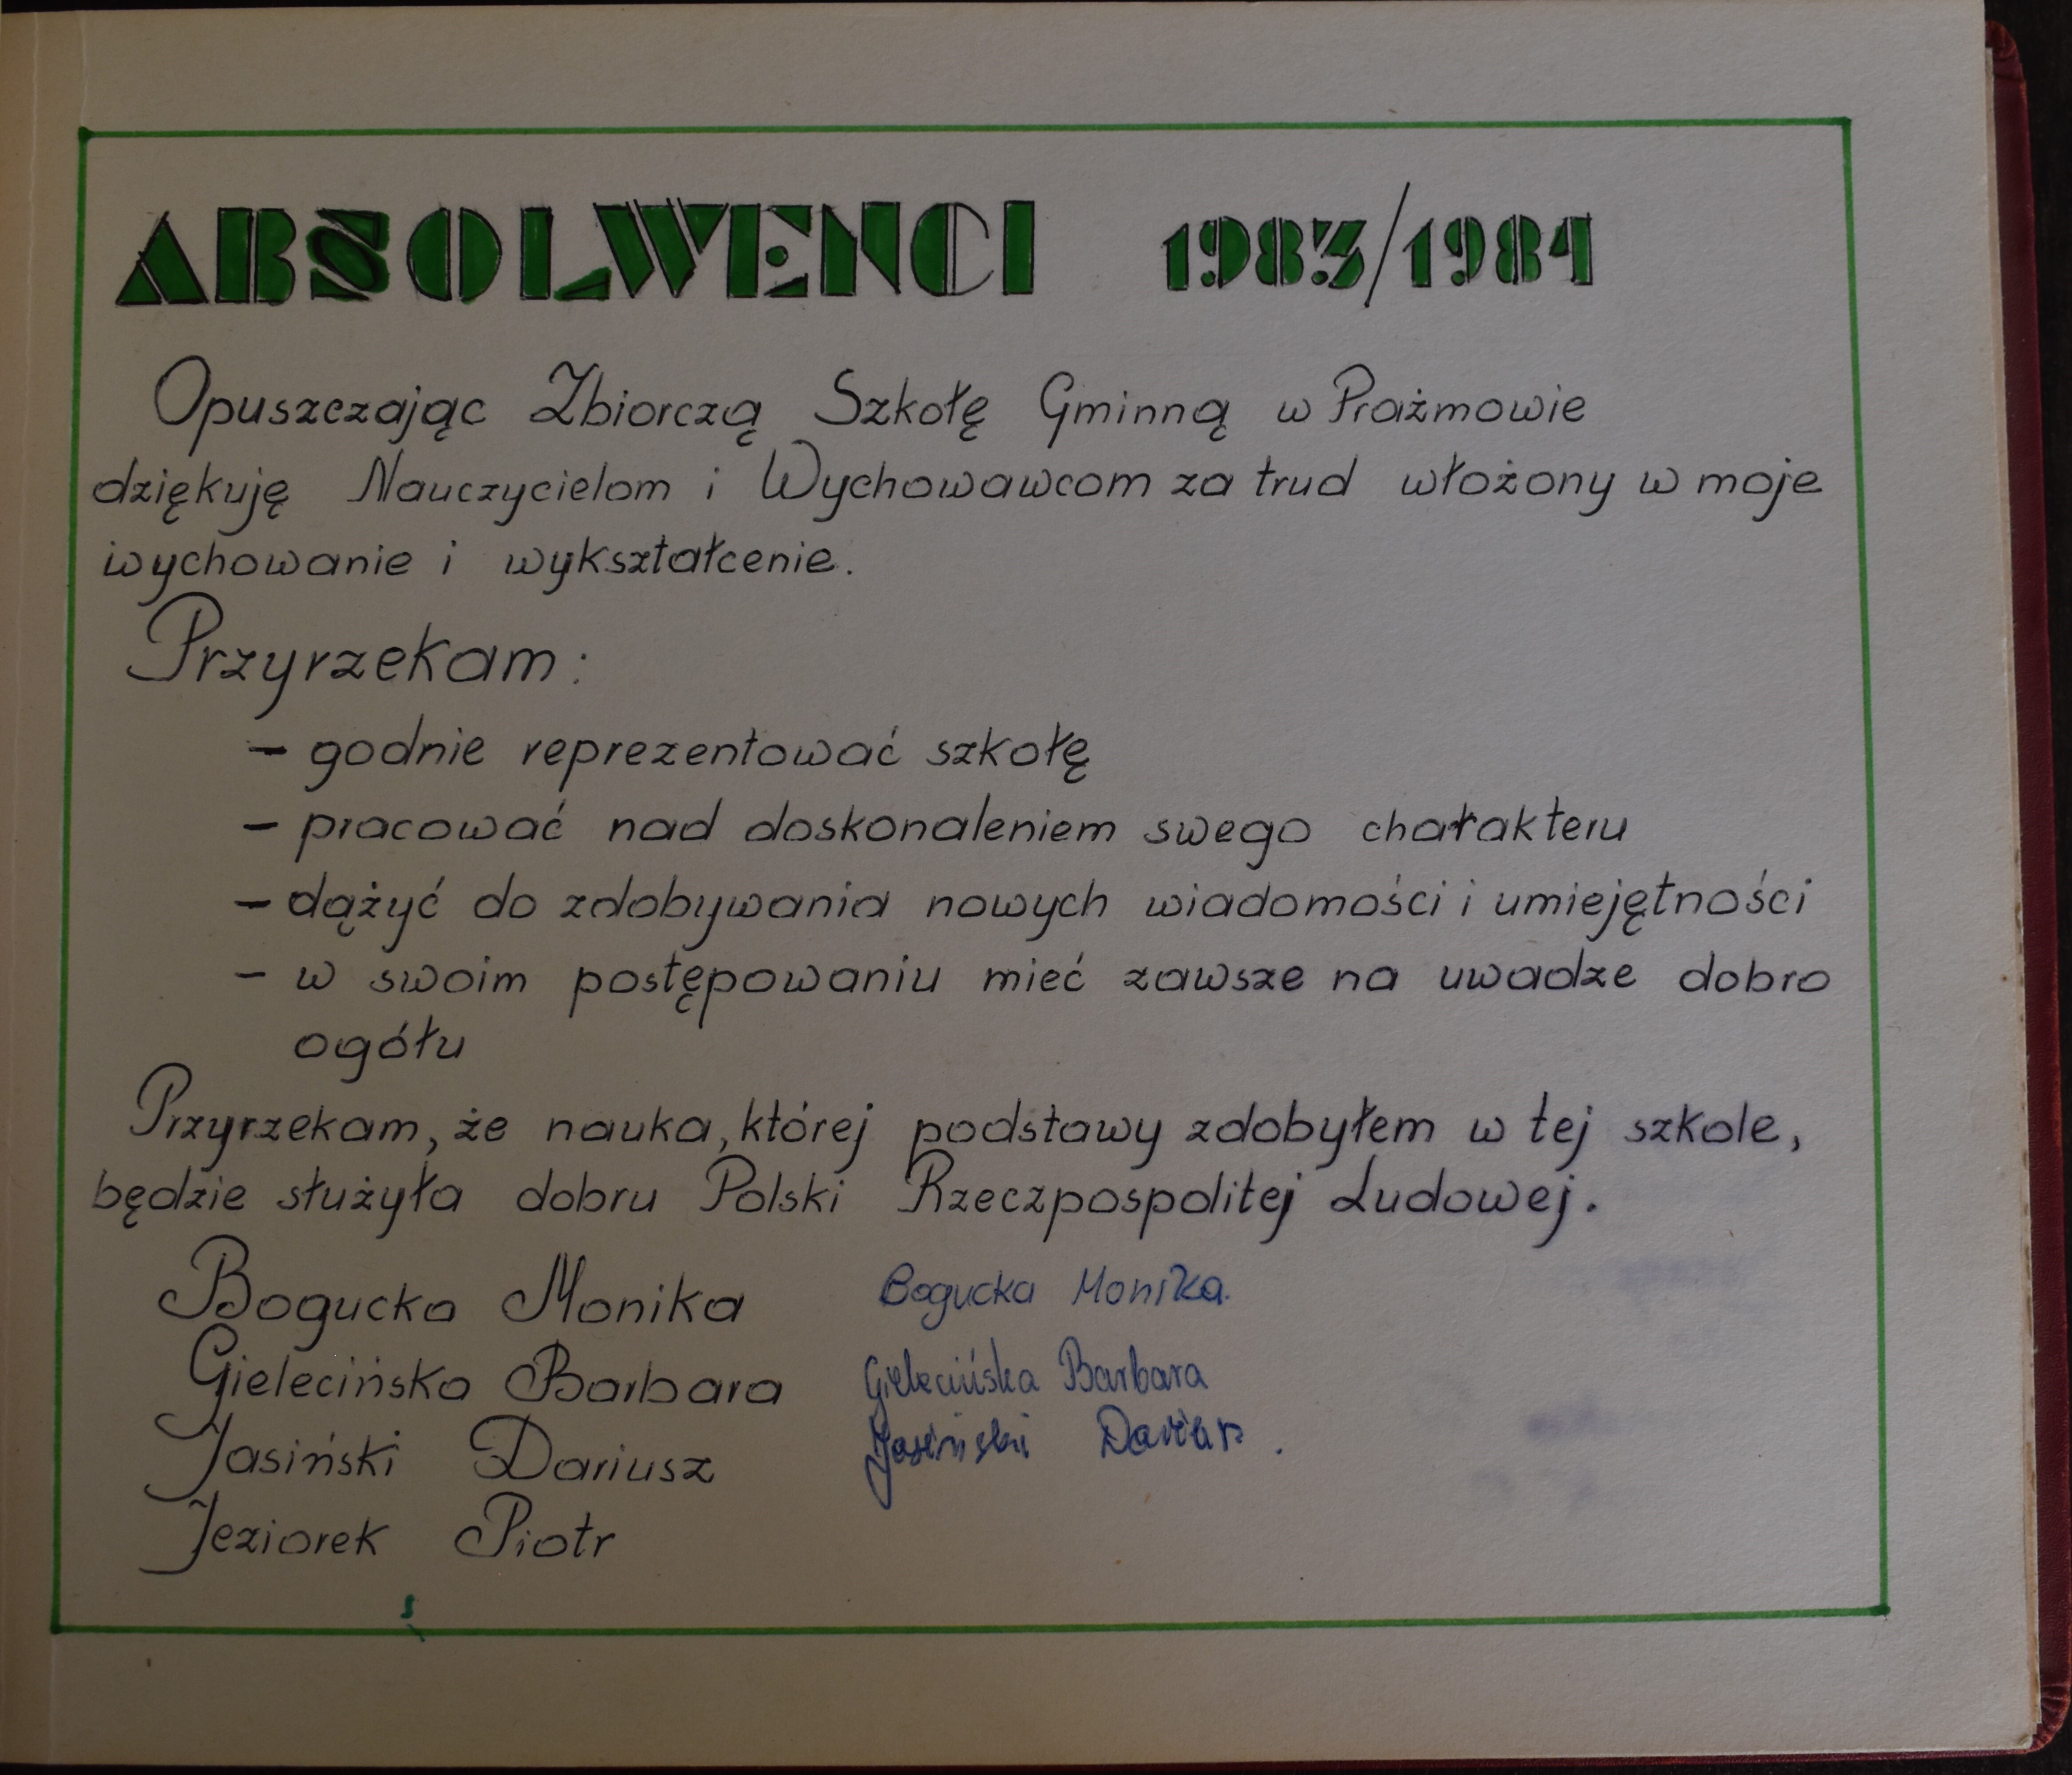 ABSOLWENCI 1983/1984
Opuszczając Zbiorczą Szkołę Gminną w Prażmowie
dziękuję Nauczycielom i Wychowawcom za trud włożony w moje
wychowanie i wykształcenie.
Przyrzekam:
- godnie reprezentować szkołę
- pracować nad doskonaleniem swego charakteru
- dążyć do zdobywania nowych wiadomości i umiejętności
- w swoim postępowaniu mieć zawsze na uwadze dobro
ogółu
Przyrzekam, że nauka, której podstawy zdobyłem w tej szkole,
będzie służyła dobru Polski Rzeczpospolitej Ludowej.
Bogucka Monika Bogucka Monika.
Gielecińska Barbara Gielecińska Barbara
Jasiński Dariusz Jasiński
Jeziorek Piotr